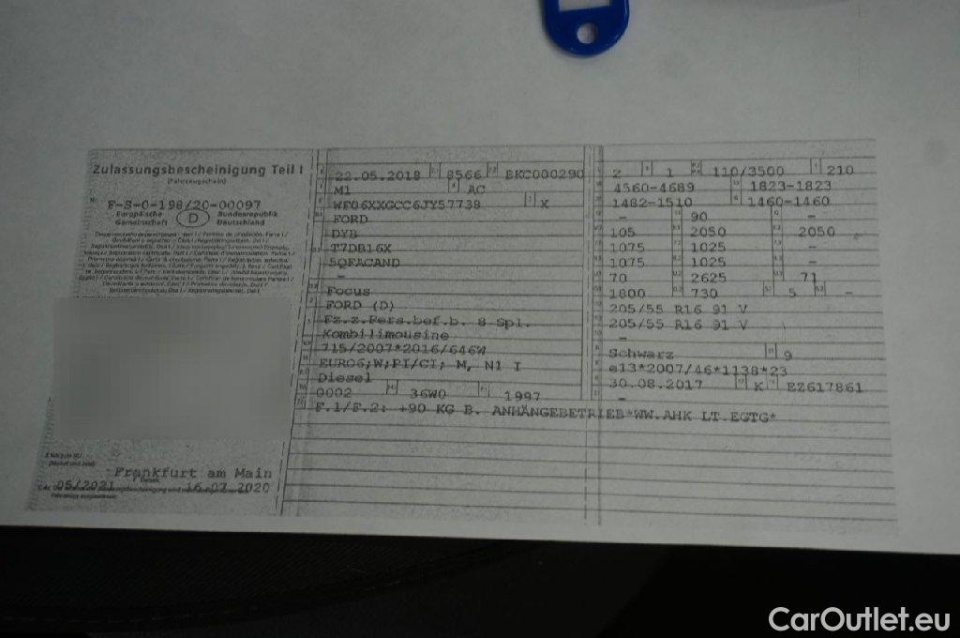 Zulassungsbescheinigung Teil I
(Fahrzeugschein)
F-S-0-198/20-00097
Europäische Gemeinschaft
D
Bundesrepublik Deutschland
Frankfurt am Main
05/2021
16.07.2020
22.05.2018 8566 BKC000290
M1 AC
WF06XXGCC6JY57738 X
FORD
DYB
T7DB16X
5QFACAND
-
Focus
FORD (D)
Fz.z.Pers.bef.b. 8 Spl.
Kombilimousine
715/2007*2016/646W
EURO6;W;PI/CI; M, N1 I
Diesel
0002 36W0 1997
F.1/F.2: +90 KG B. ANHÄNGEBETRIEB*WW.AHK LT.EGTG*
2 1 110/3500 210
4360-4689 1823-1823
1482-1510 1460-1460
- 90 -
105 2050 2050
1075 1025 -
1075 1025 -
70 2625 71
1800 730 5 -
205/55 R16 91 V
205/55 R16 91 V
-
Schwarz 9
e13*2007/46*1138*23
30.08.2017 K EZ617861
-
CarOutlet.eu